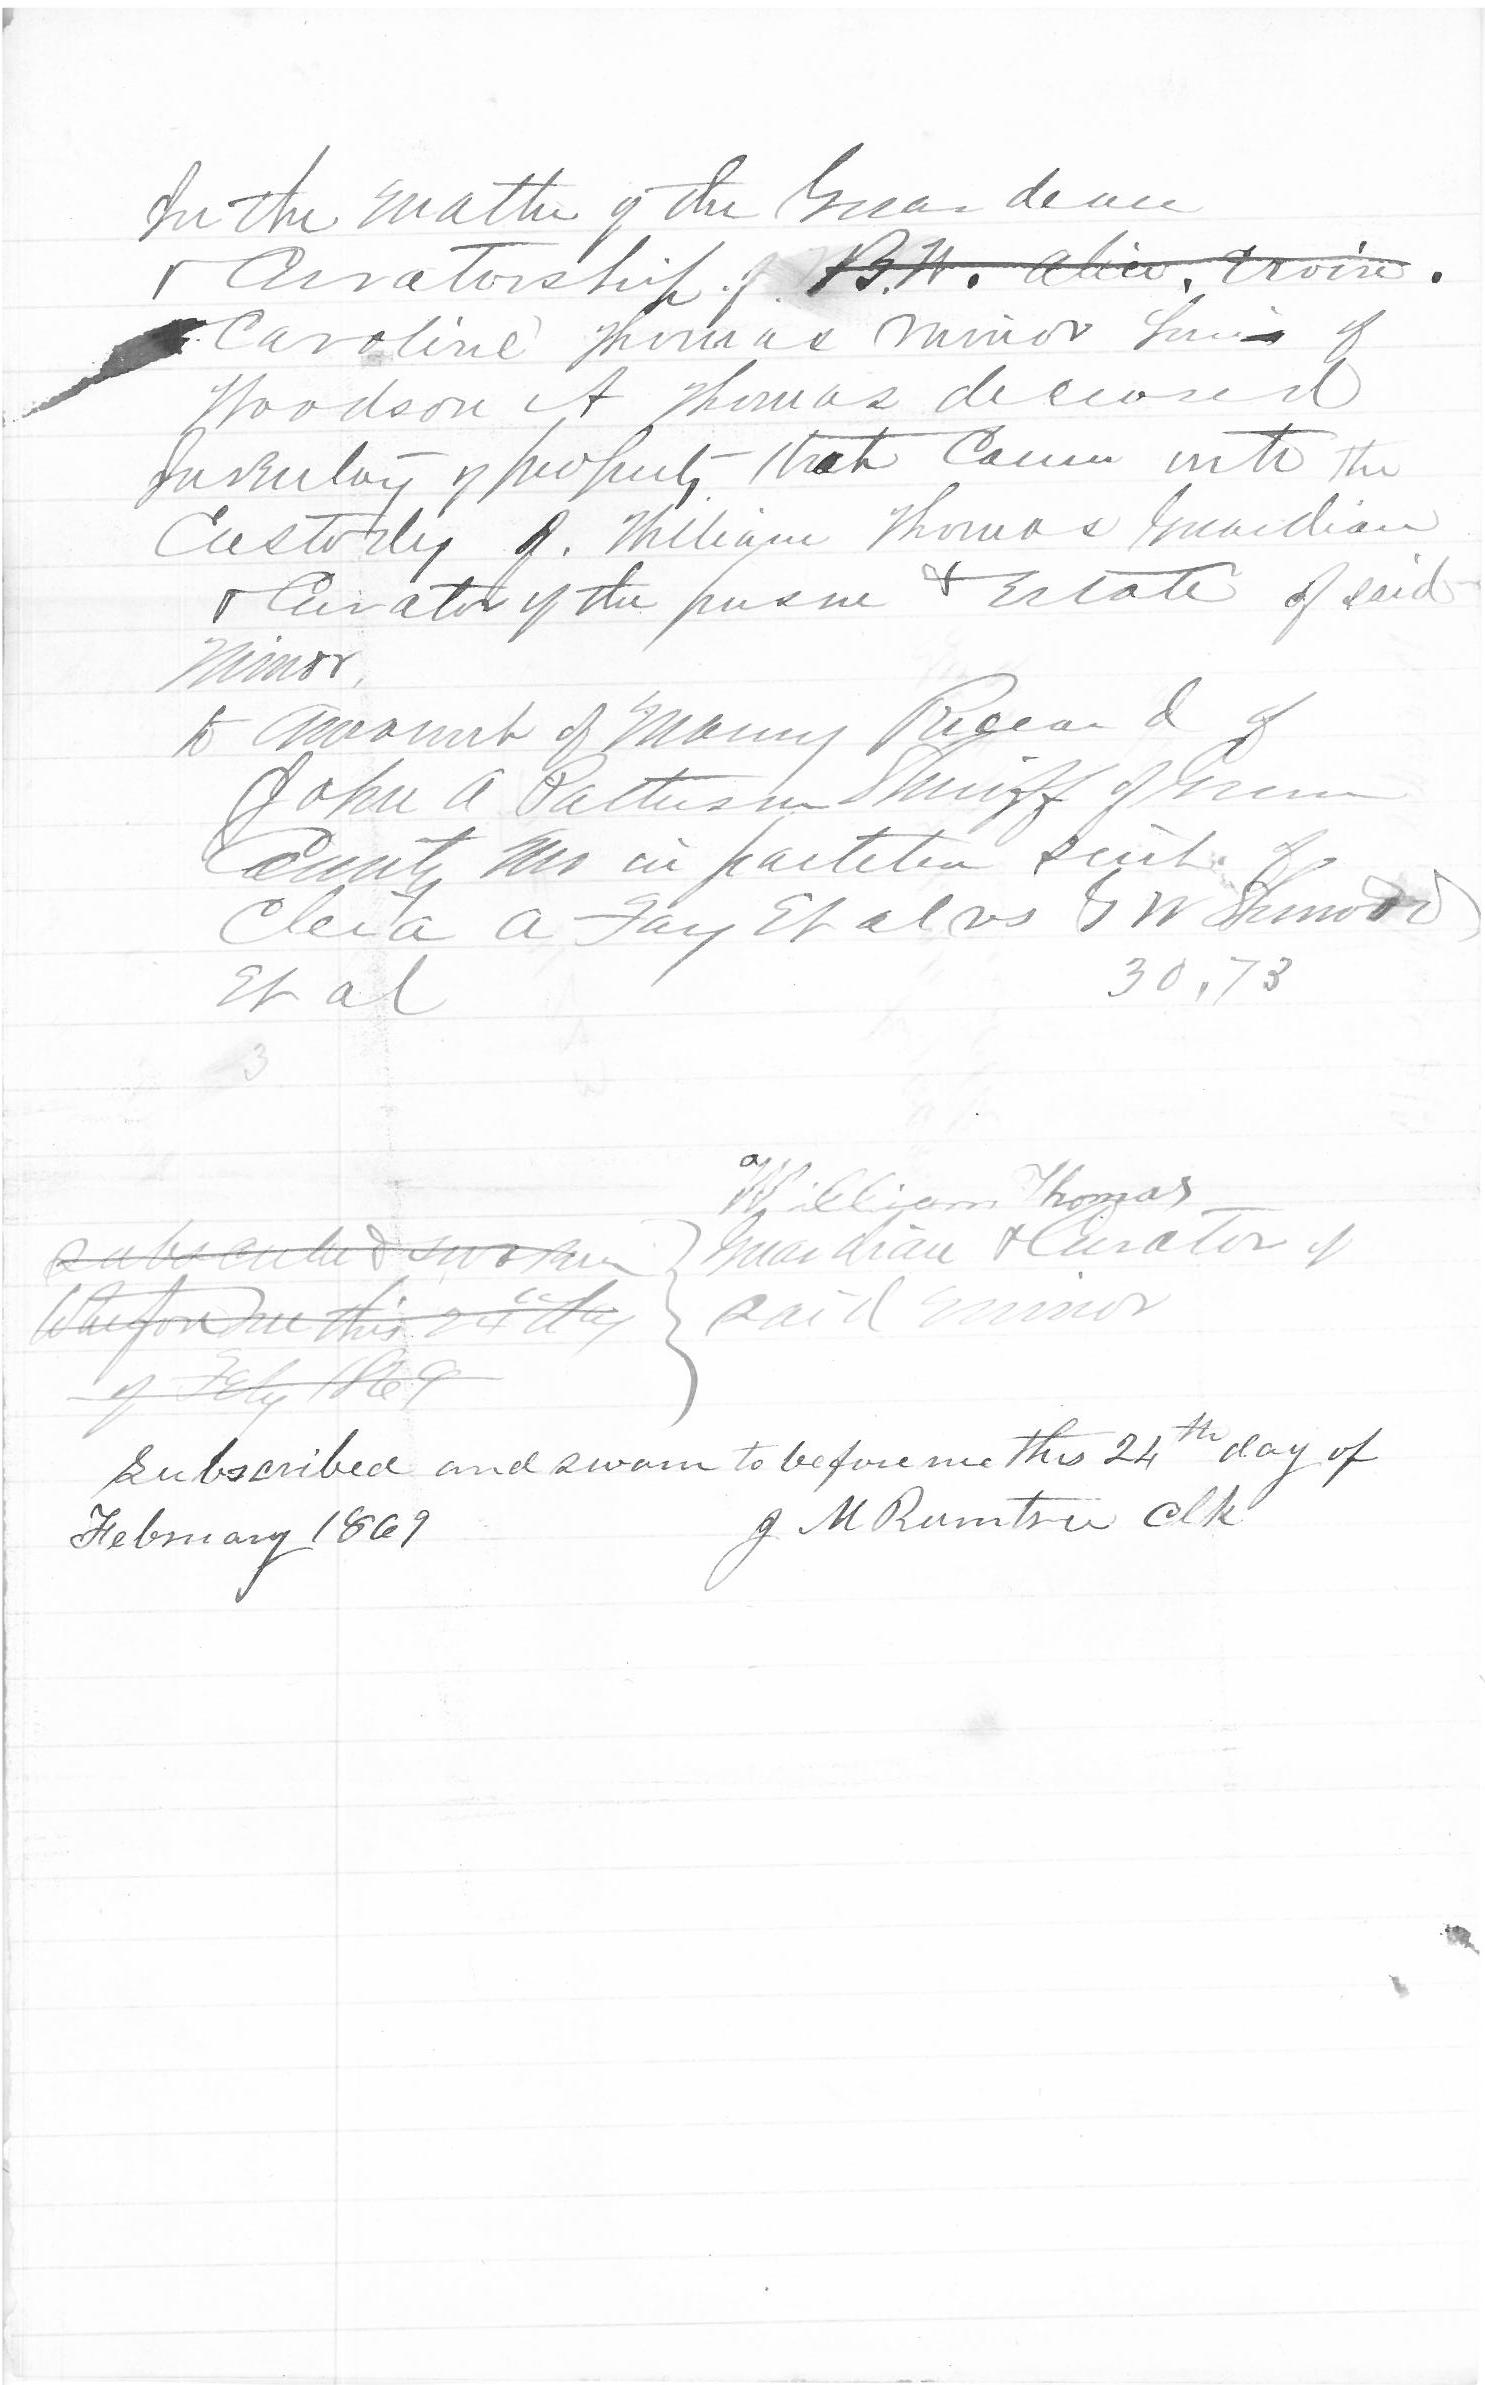 In the matter of the Guardean
& Curatorship of B.W. Alice. Ervin.
Caroline Thomas minor heir of
Woodson A Thomas deceased
Inventory of property that Came into the
Custody of William Thomas Guardian
& Curator of the person & Estate of said
Minor,
to amount of Money Received of
John A Patterson Sheriff of Green
County Mo in partition suit of
A Fay Et al vs G W Sherwood
Et al 30.73
3
William Thomas
Guardian & Curator of
said minor
subscribed & sworn
before me this 24th day
of Feby 1869
Subscribed and sworn to before me this 24th day of
February 1869 J M Rumtree Clk